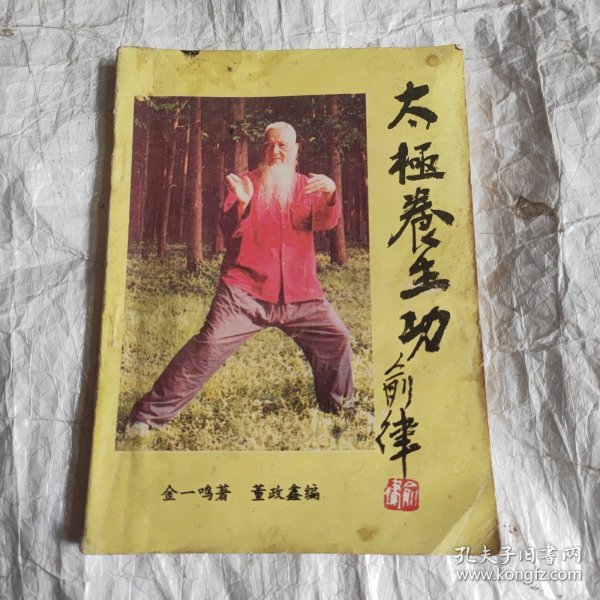 太極養生功
俞律
俞律
金一鸣著 董政鑫编
孔夫子旧书网
www.kongfz.com